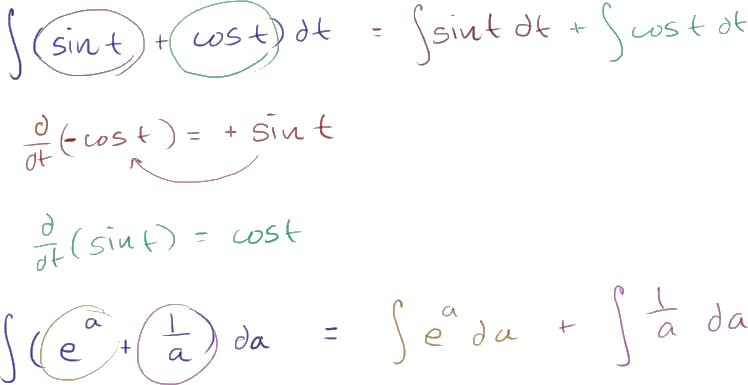 ∫(sin t + cos t) dt = ∫sin t dt + ∫cos t dt
d/dt (-cos t) = + sin t
d/dt (sin t) = cos t
∫(e^a + 1/a) da = ∫e^a da + ∫ 1/a da